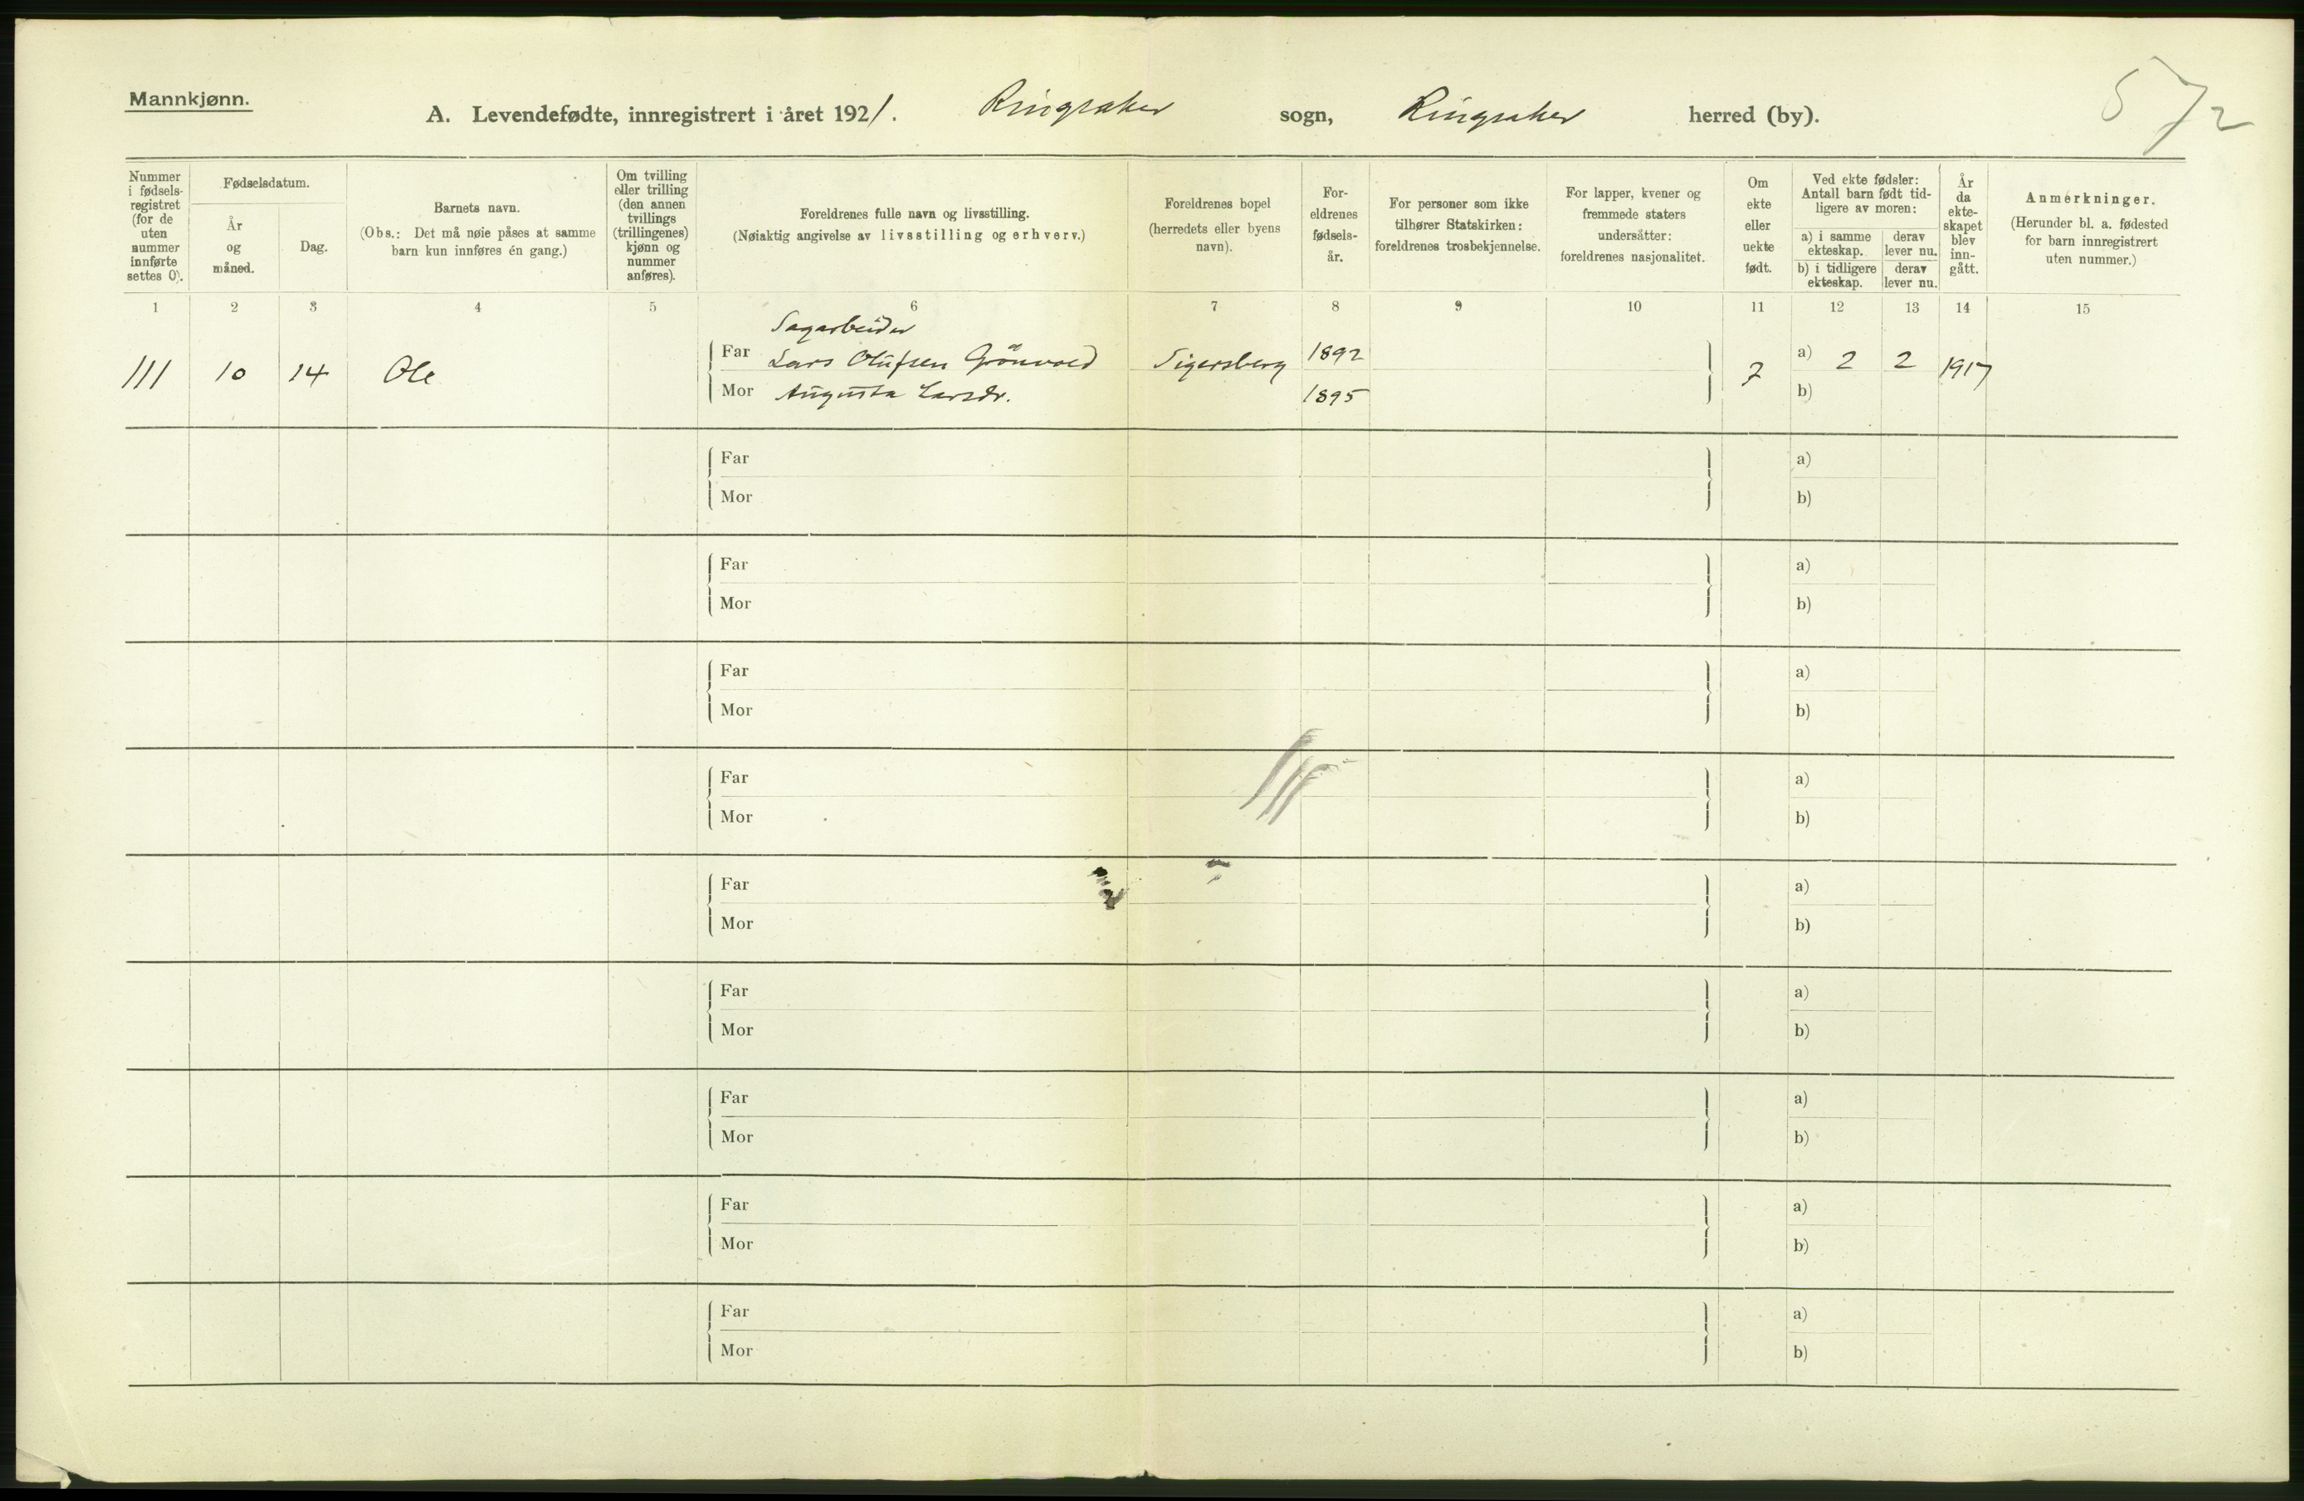 Mannkjønn.
A. Levendefødte, innregistrert i året 1921. Ringsaker sogn, Ringsaker herred (by).
5 7/2
Nummer i fødsels-registret (for de uten nummer innførte settes 0).
Fødselsdatum.
År og måned.
Dag.
Barnets navn.
(Obs.: Det må nøie påses at samme barn kun innføres én gang.)
Om tvilling eller trilling (den annen tvillings (trillingenes) kjønn og nummer anføres).
Foreldrenes fulle navn og livsstilling.
(Nøiaktig angivelse av livsstilling og erhverv.)
Foreldrenes bopel (herredets eller byens navn).
For-eldrenes fødsels-år.
For personer som ikke tilhører Statskirken: foreldrenes trosbekjennelse.
For lapper, kvener og fremmede staters undersåtter: foreldrenes nasjonalitet.
Om ekte eller uekte født.
Ved ekte fødsler: Antall barn født tid-ligere av moren:
a) i samme ekteskap.
derav lever nu.
b) i tidligere ekteskap.
derav lever nu.
År da ekte-skapet blev inn-gått.
Anmerkninger.
(Herunder bl. a. fødested for barn innregistrert uten nummer.)
1 2 3 4 5 6 7 8 9 10 11 12 13 14 15
Sagarbeider
111 10 14 Ole Far Lars Olufsen Grönvold Sigersberg 1892 7 a) 2 2 1917
Mor Augusta Larsdr. 1895 b)
Far a)
Mor b)
Far a)
Mor b)
Far a)
Mor b)
Far a)
Mor b)
Far a)
Mor b)
Far a)
Mor b)
Far a)
Mor b)
Far a)
Mor b)
Far a)
Mor b)